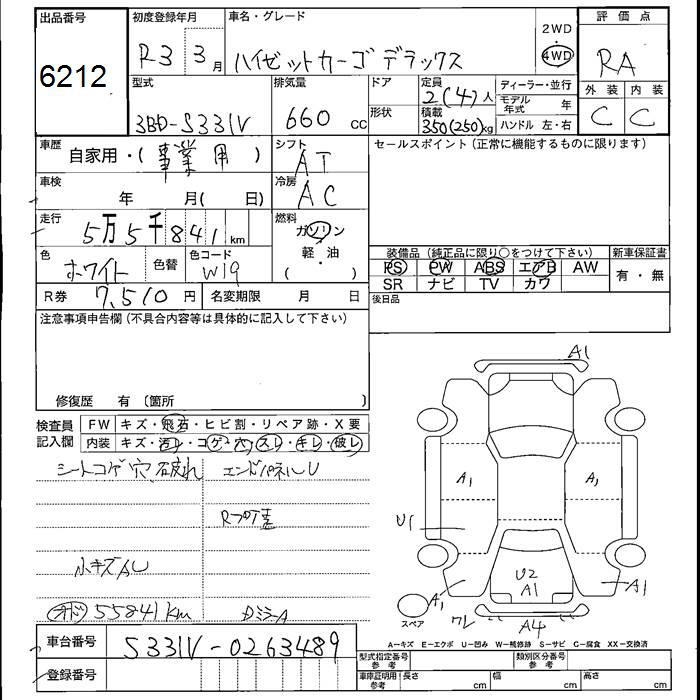 出品番号 初度登録年月 車名・グレード 2WD 評価点
6212 R3 3月 ハイゼットカーゴ デラックス 4WD RA
型式 排気量 ドア 定員 2(4)人 ディーラー・並行 外装 内装
3BD-S331V 660 cc 形状 積載 350(250)kg モデル年式 年 C C
ハンドル 左・右
車歴 自家用・(事業用) シフト AT セールスポイント(正常に機能するものに限ります)
車検 年 月( 日) 冷房 AC
走行 5万5千841km 燃料 ガソリン
軽・油
( )
色 ホワイト 色替 色コード W19
装備品(純正品に限り○をつけて下さい) 新車保証書
PS PW ABS エアB AW 有・無
SR ナビ TV カワ
R券 7,510円 名変期限 月 日 後日品
注意事項申告欄(不具合内容等は具体的に記入して下さい)
修復歴 有〔箇所 〕
検査員記入欄 FW キズ・飛石・ヒビ割・リペア跡・X要
内装 キズ・汚レ・コゲ・穴・スレ・キレ・破レ
シートコゲ穴破れ エンドパネルU
小キズAU
オド 55841km DミラーA
A1
A1 A1
U1
U2
A1
A1 A1
スペア ワレ A4
A=キズ E=エクボ U=凹み W=補修跡 S=サビ C=腐食 XX=交換済
車台番号 S331V-0263489
登録番号
型式指定番号 参考 類別区分番号 参考
車庫証明用 参考 長さ cm 幅 cm 高さ cm